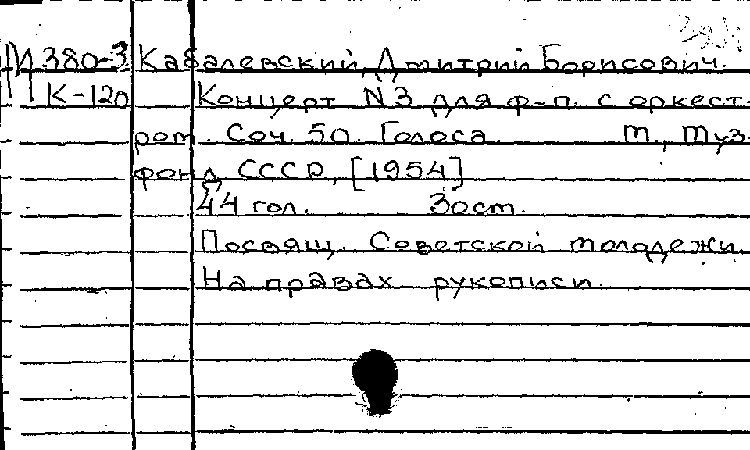 М 380-3 Кабалевский, Дмитрий Борисович.
К-120 Концерт N3 для ф-п. с оркест
ром. Соч. 50. Голоса. М., Муз.
фонд СССР, [1954]
44 гол. 30ст.
Посвящ. Советской молодежи.
На правах рукописи.